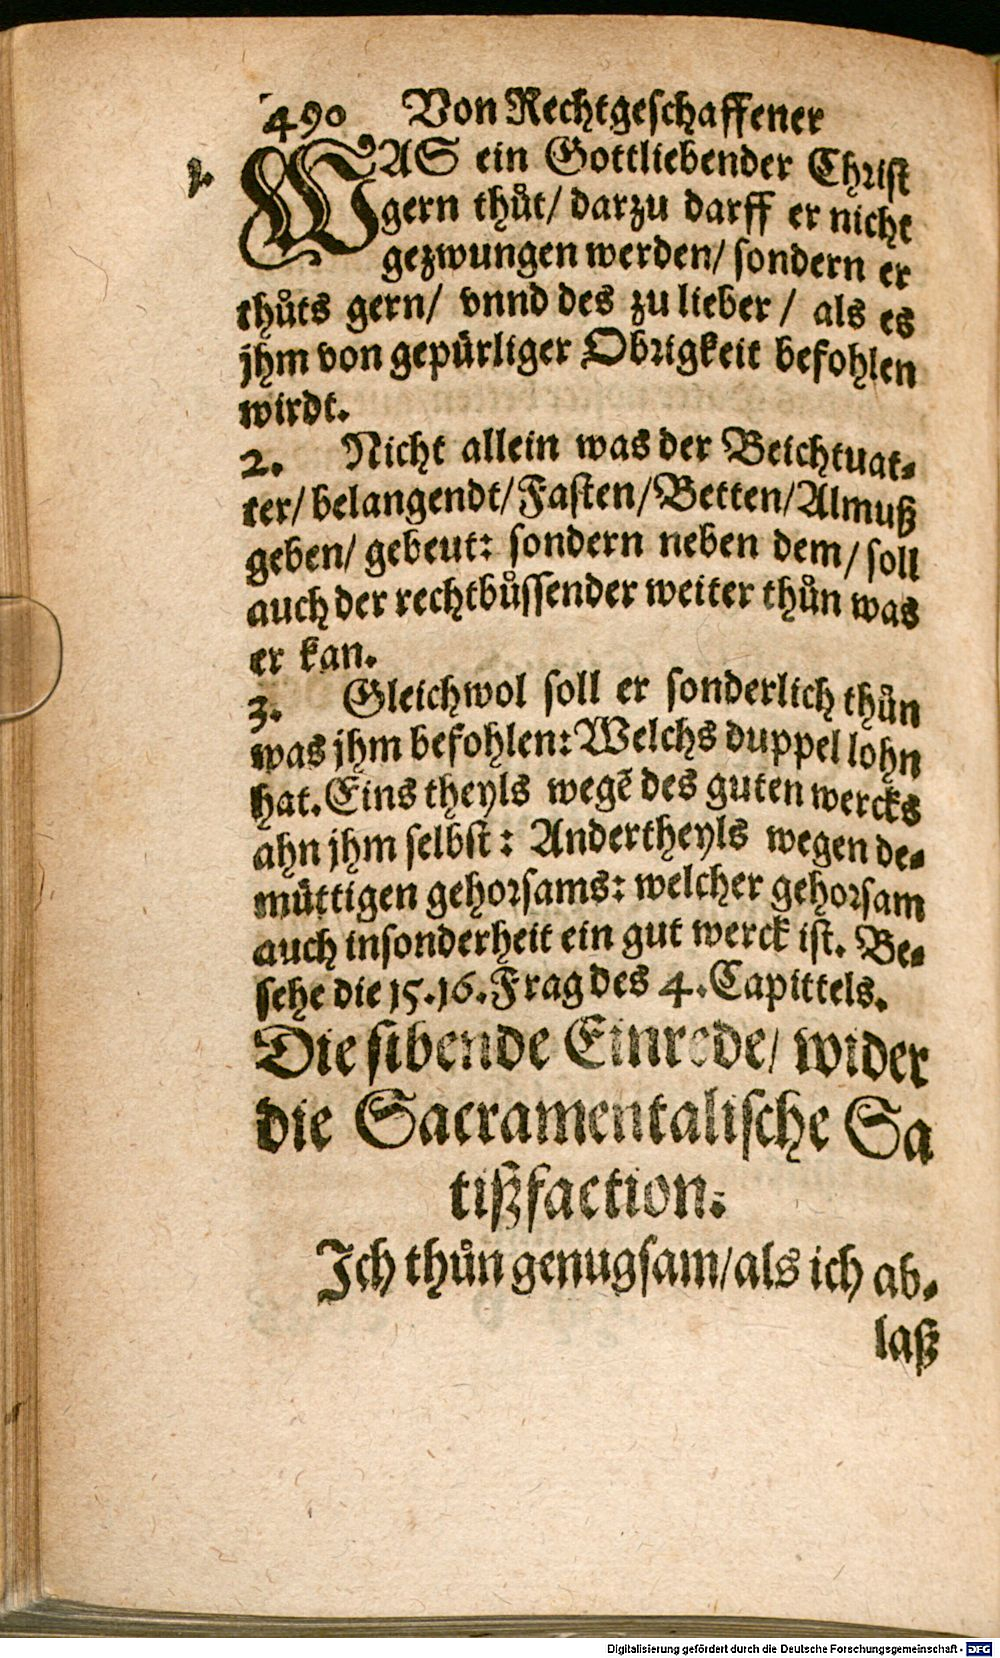 490 Von Rechtgeschaffener
1. WAS ein Gottliebender Christ
gern thůt/ darzu darff er nicht
gezwungen werden/ sondern er
thůts gern/ vnnd des zu lieber / als es
jhm von gepürliger Obrigkeit befohlen
wirdt.
2. Nicht allein was der Beichtuat⸗
ter/ belangendt/ Fasten/ Betten/ Almuß
geben/ gebeut: sondern neben dem/ soll
auch der rechtbůssender weiter thůn was
er kan.
3. Gleichwol soll er sonderlich thůn
was jhm befohlen: Welchs duppel lohn
hat. Eins theyls wegẽ des guten wercks
ahn jhm selbst: Andertheyls wegen de⸗
müttigen gehorsams: welcher gehorsam
auch insonderheit ein gut werck ist. Be⸗
sehe die 15.16. Frag des 4. Capittels.
Die sibende Einrede/ wider
die Sacramentalische Sa
tißfaction:
Ich thůn genugsam/ als ich ab⸗
laß
Digitalisierung gefördert durch die Deutsche Forschungsgemeinschaft - DFG